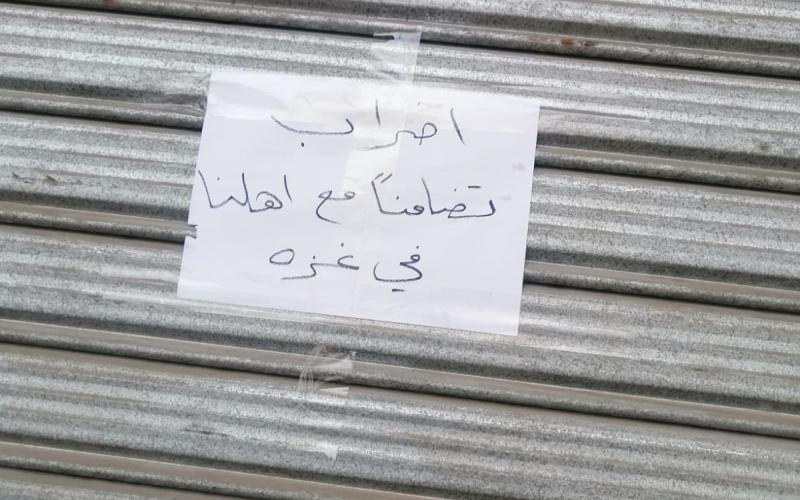 اضراب
تضامناً مع اهلنا
في غزه